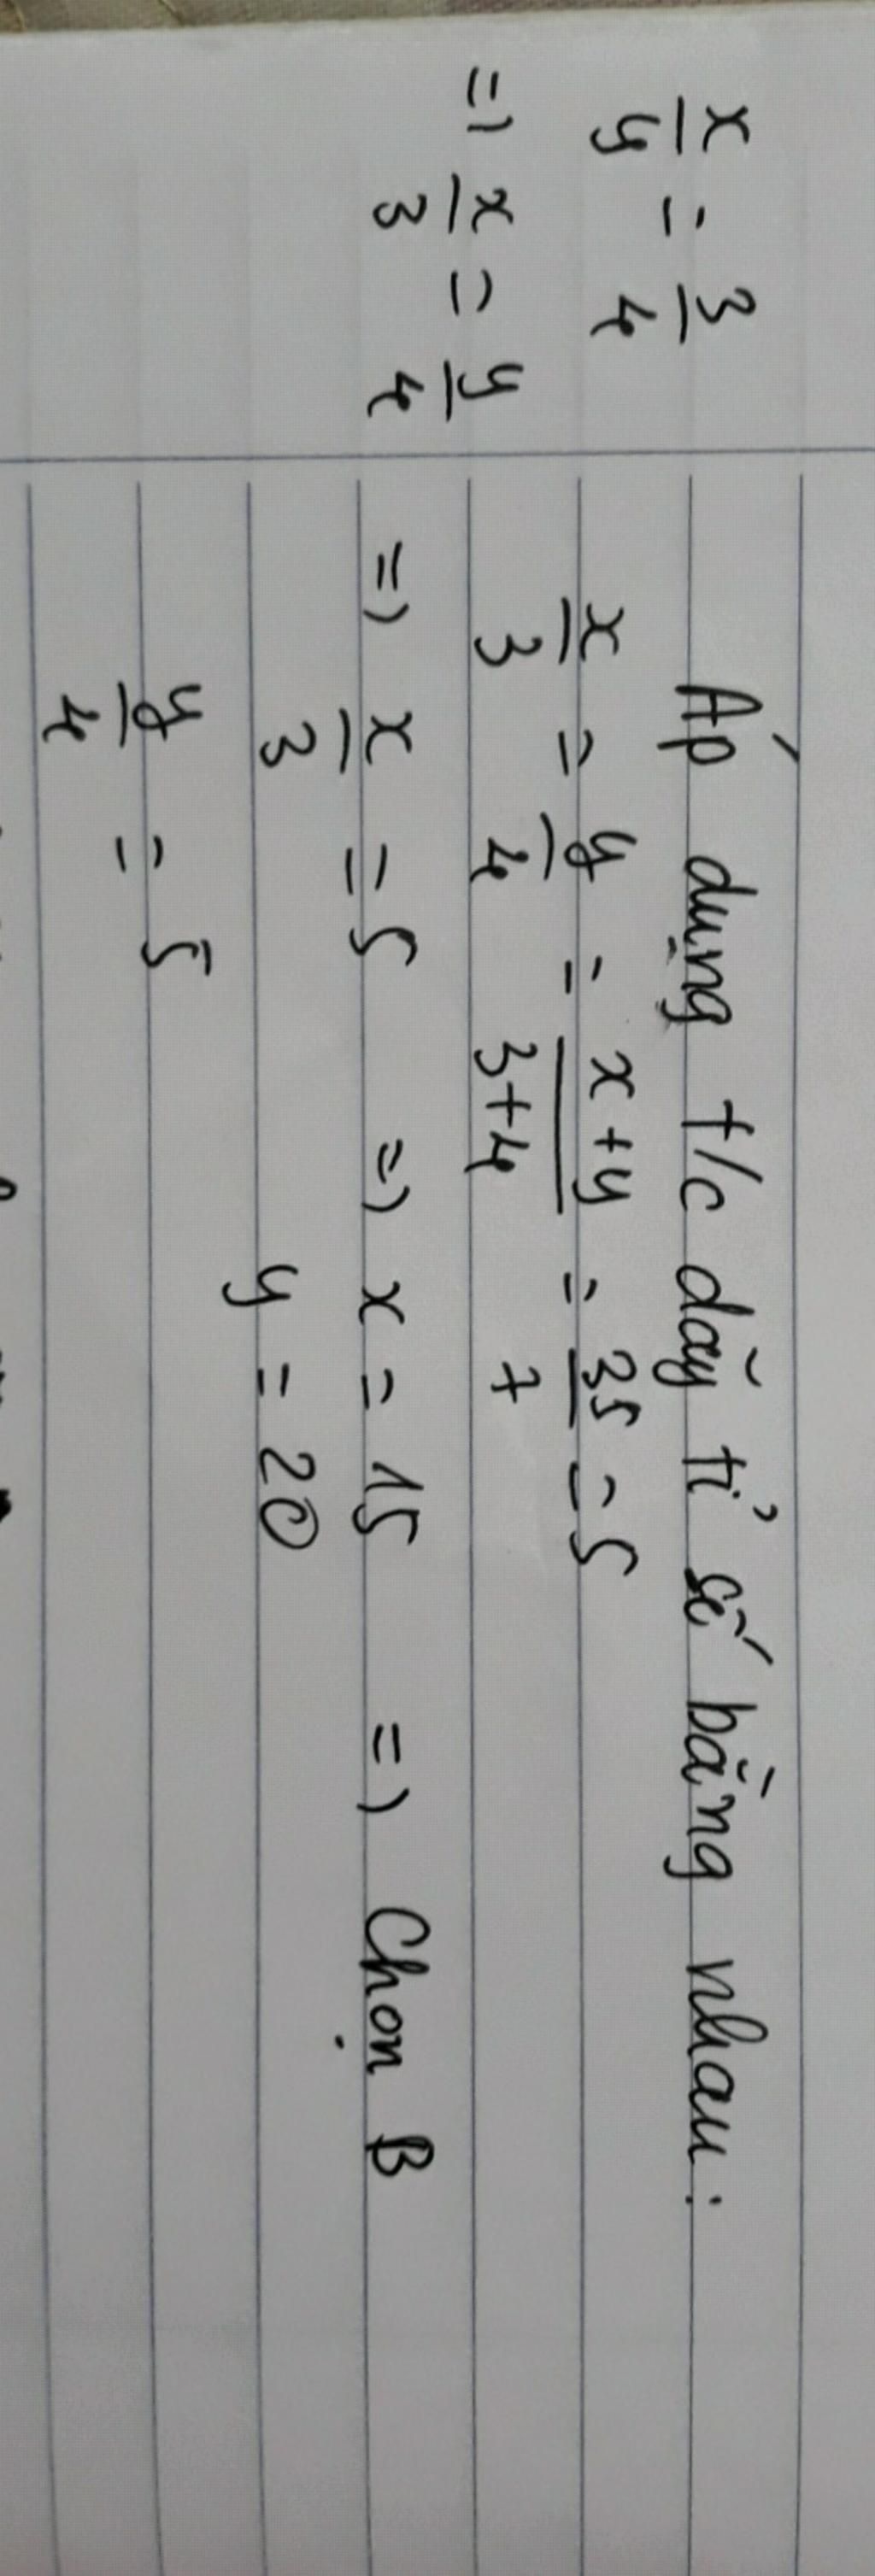 x/y = 3/4
=) x/3 = y/4
Áp dụng t/c dãy tỉ số bằng nhau:
x/3 = y/4 = x+y/3+4 = 35/7 = 5
=) x/3 = 5 =) x = 15 =) Chọn B
y/4 = 5 y = 20